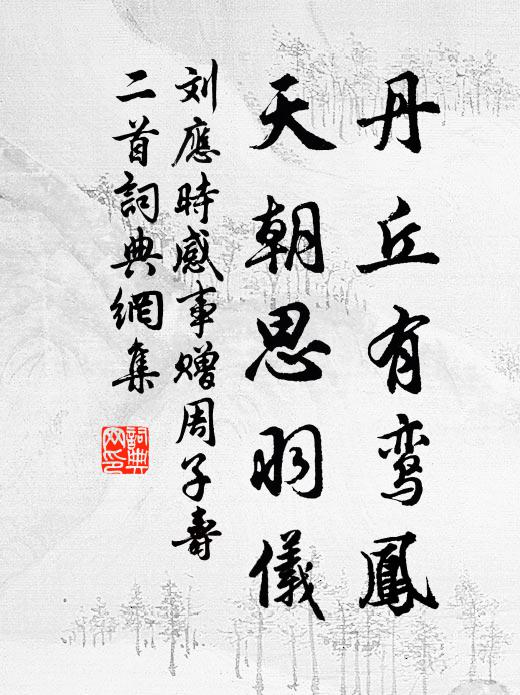 丹丘有鸾鳳
天朝思羽儀
刘應時感事贈周子壽
二首詞典網集
詞典
网印